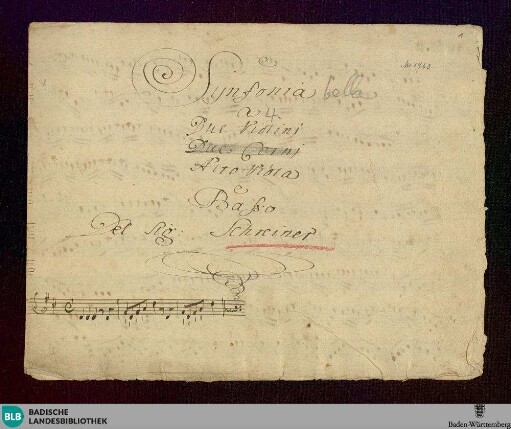 1
Synfonia bella
a 4.
Due Violini
Due Corni
Alto Viola
e
Basso
Del Sig: Schreiner
BLB BADISCHE
LANDESBIBLIOTHEK
Baden-Württemberg